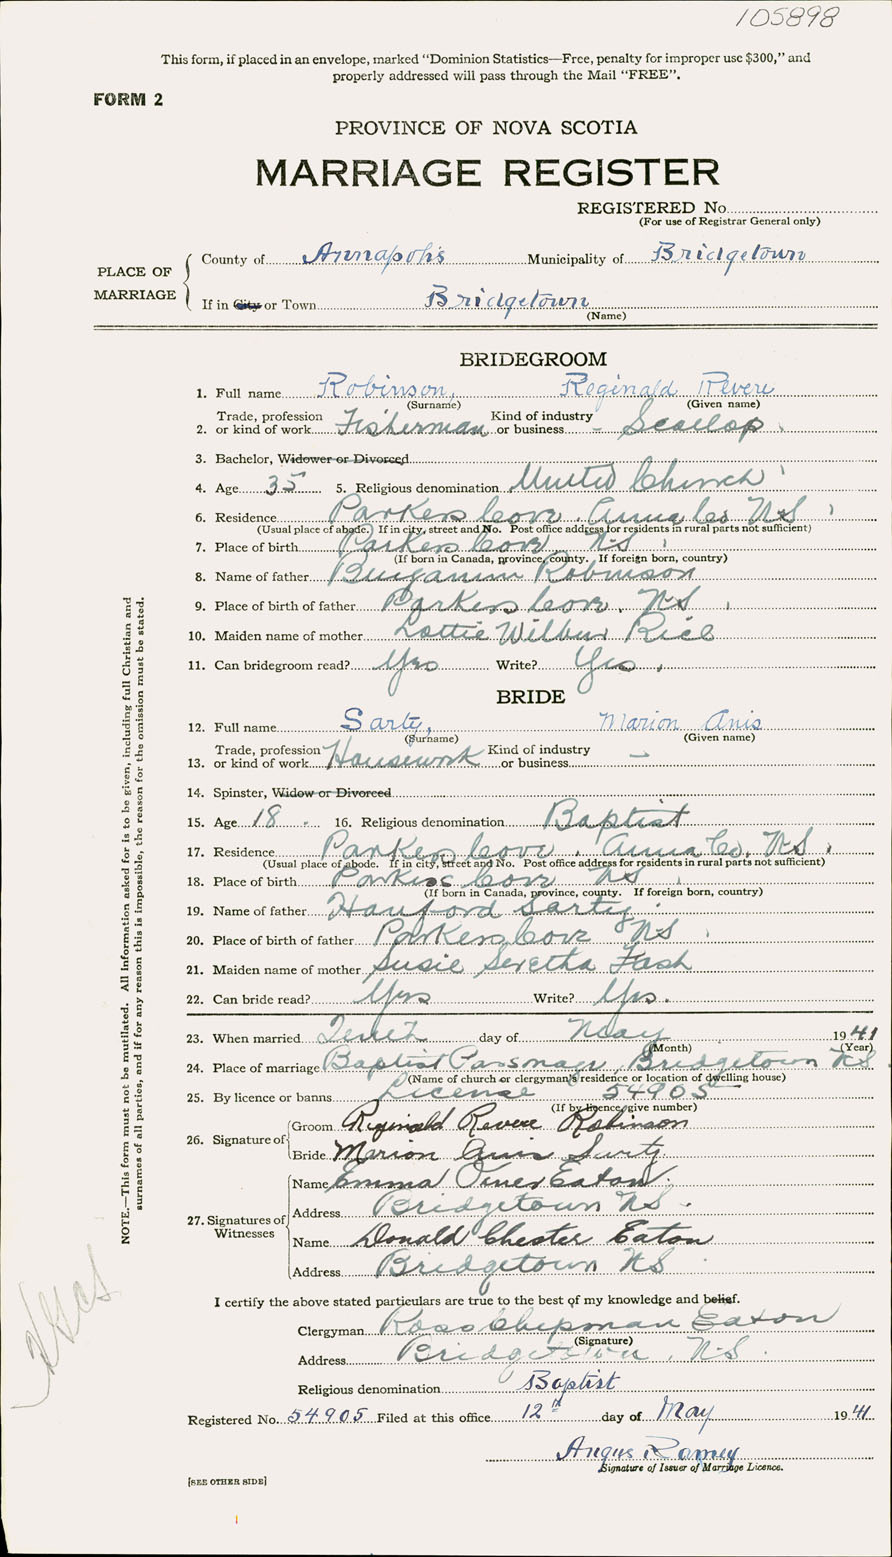 105898
This form, if placed in an envelope, marked "Dominion Statistics—Free, penalty for improper use $300," and
properly addressed will pass through the Mail "FREE".
FORM 2
PROVINCE OF NOVA SCOTIA
MARRIAGE REGISTER
REGISTERED No.
(For use of Registrar General only)
PLACE OF MARRIAGE
County of Annapolis Municipality of Bridgetown
If in City or Town Bridgetown
(Name)
BRIDEGROOM
1. Full name Robinson, Reginald Revere
(Surname) (Given name)
2. Trade, profession or kind of work Fisherman Kind of industry or business - Scallop
3. Bachelor, Widower or Divorced
4. Age 35 5. Religious denomination United Church
6. Residence Parkers Cove Anna Co N-S
(Usual place of abode. If in city, street and No. Post office address for residents in rural parts not sufficient)
7. Place of birth Parkers Cove N-S
(If born in Canada, province, county. If foreign born, country)
8. Name of father Benjamin Robinson
9. Place of birth of father Parkers Cove. N-S
10. Maiden name of mother Lottie Wilbur Rice
11. Can bridegroom read? Yes Write? Yes
BRIDE
12. Full name Sarty, Marion Anis
(Surname) (Given name)
13. Trade, profession or kind of work Housework Kind of industry or business —
14. Spinster, Widow or Divorced
15. Age 18 16. Religious denomination Baptist
17. Residence Parkers Cove. Anna Co. N-S
(Usual place of abode. If in city, street and No. Post office address for residents in rural parts not sufficient)
18. Place of birth Parkers Cove N-S
(If born in Canada, province, county. If foreign born, country)
19. Name of father Hanford Sarty
20. Place of birth of father Parkers Cove N-S
21. Maiden name of mother Susie Seretha Fash
22. Can bride read? Yes Write? Yes.
23. When married Tenth day of May 1941
(Month) (Year)
24. Place of marriage Baptist Parsonage, Bridgetown NS
(Name of church or clergyman's residence or location of dwelling house)
25. By licence or banns License 54905
(If by licence, give number)
26. Signature of
Groom Reginald Revere Robinson
Bride Marion Anis Sarty
27. Signatures of Witnesses
Name Emma Eaton
Address Bridgetown NS
Name Donald Chester Eaton
Address Bridgetown NS
I certify the above stated particulars are true to the best of my knowledge and belief.
Clergyman Ross Chipman Eaton
(Signature)
Address Bridgetown, N-S
Religious denomination Baptist
Registered No. 54905 Filed at this office 12th day of May 1941
Angus Ramey
Signature of Issuer of Marriage Licence.
[SEE OTHER SIDE]
NOTE.—This form must not be mutilated. All Information asked for is to be given, including full Christian and
surnames of all parties, and if for any reason this is impossible, the reason for the omission must be stated.